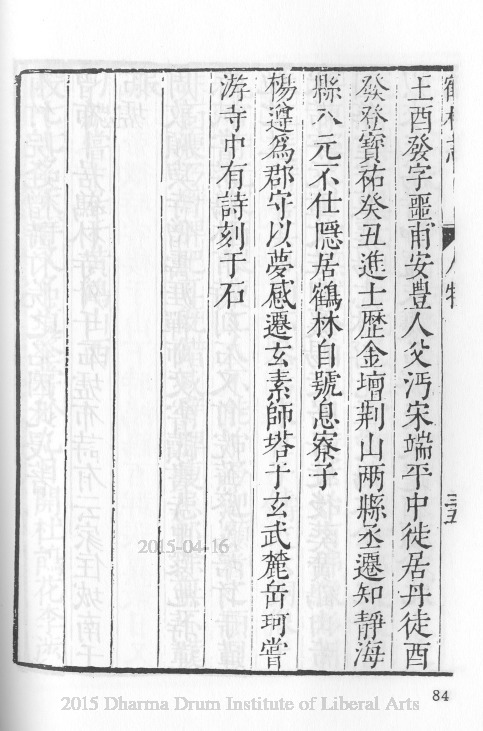 鶴林志 人物 三五
土酉發字噩甫安豊人父沔宋端平中徙居丹徒酉
發登寶祐癸丑進士歷金壇荆山兩縣丞遷知靜海
縣入元不仕隱居鶴林自號息寮子
楊遵爲郡守以夢感遷玄素師塔于玄武麓岳珂嘗
游寺中有詩刻于石
2015-04-16
84
2015 Dharma Drum Institute of Liberal Arts